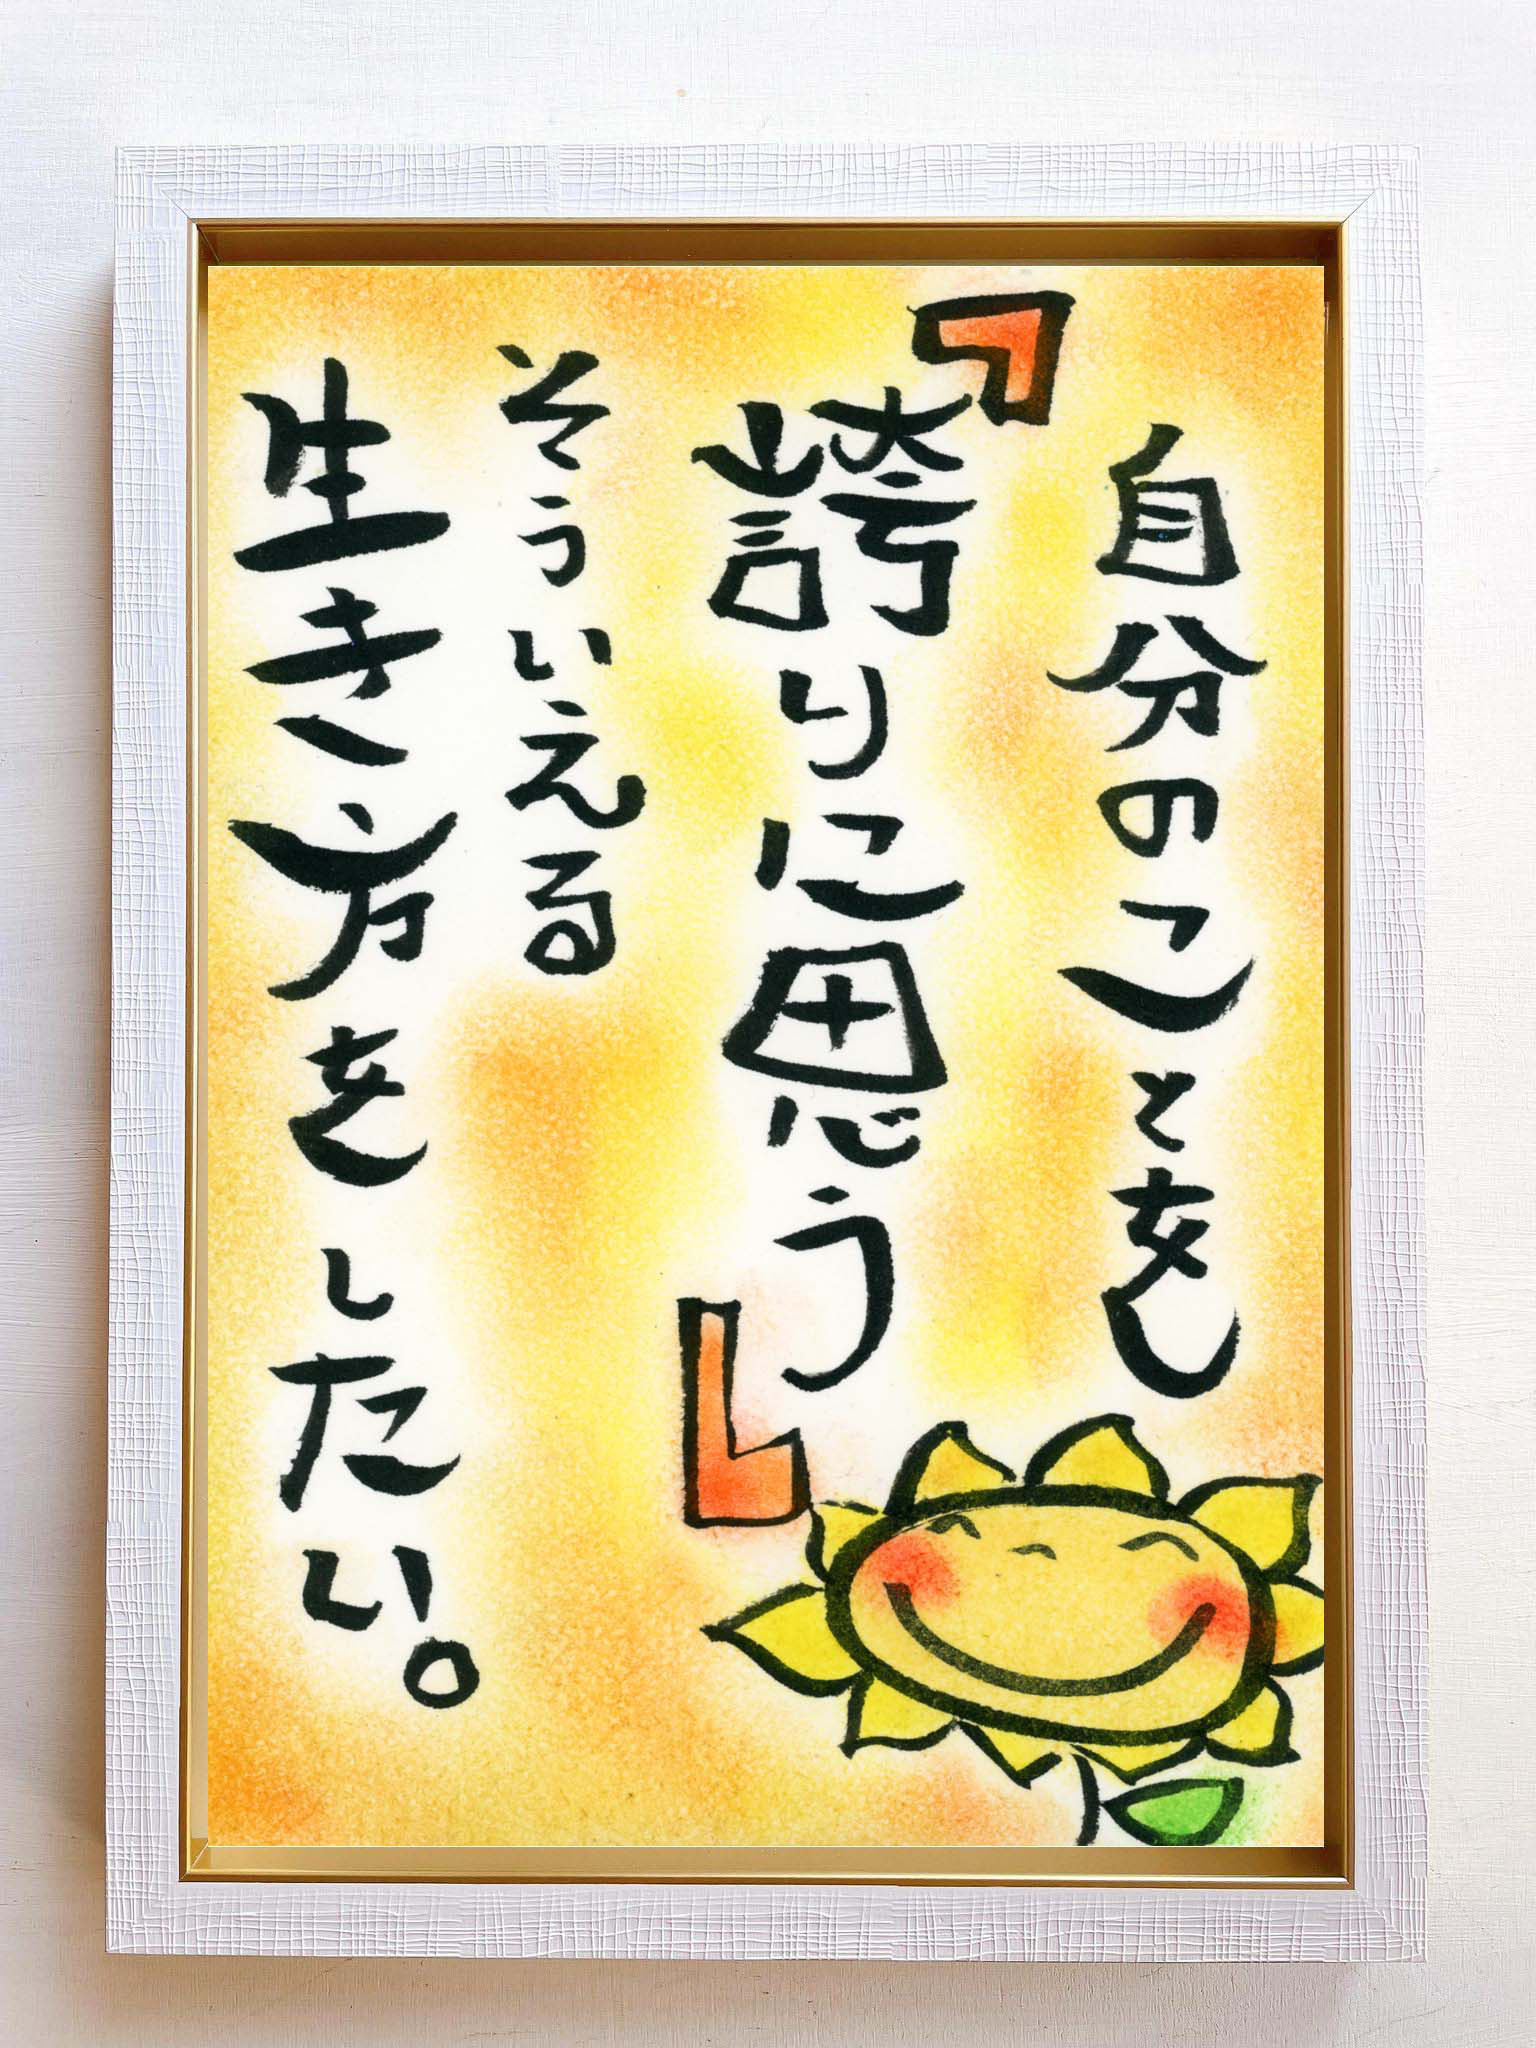 自分のことを
『誇りに思う』
そういえる
生き方をしたい。